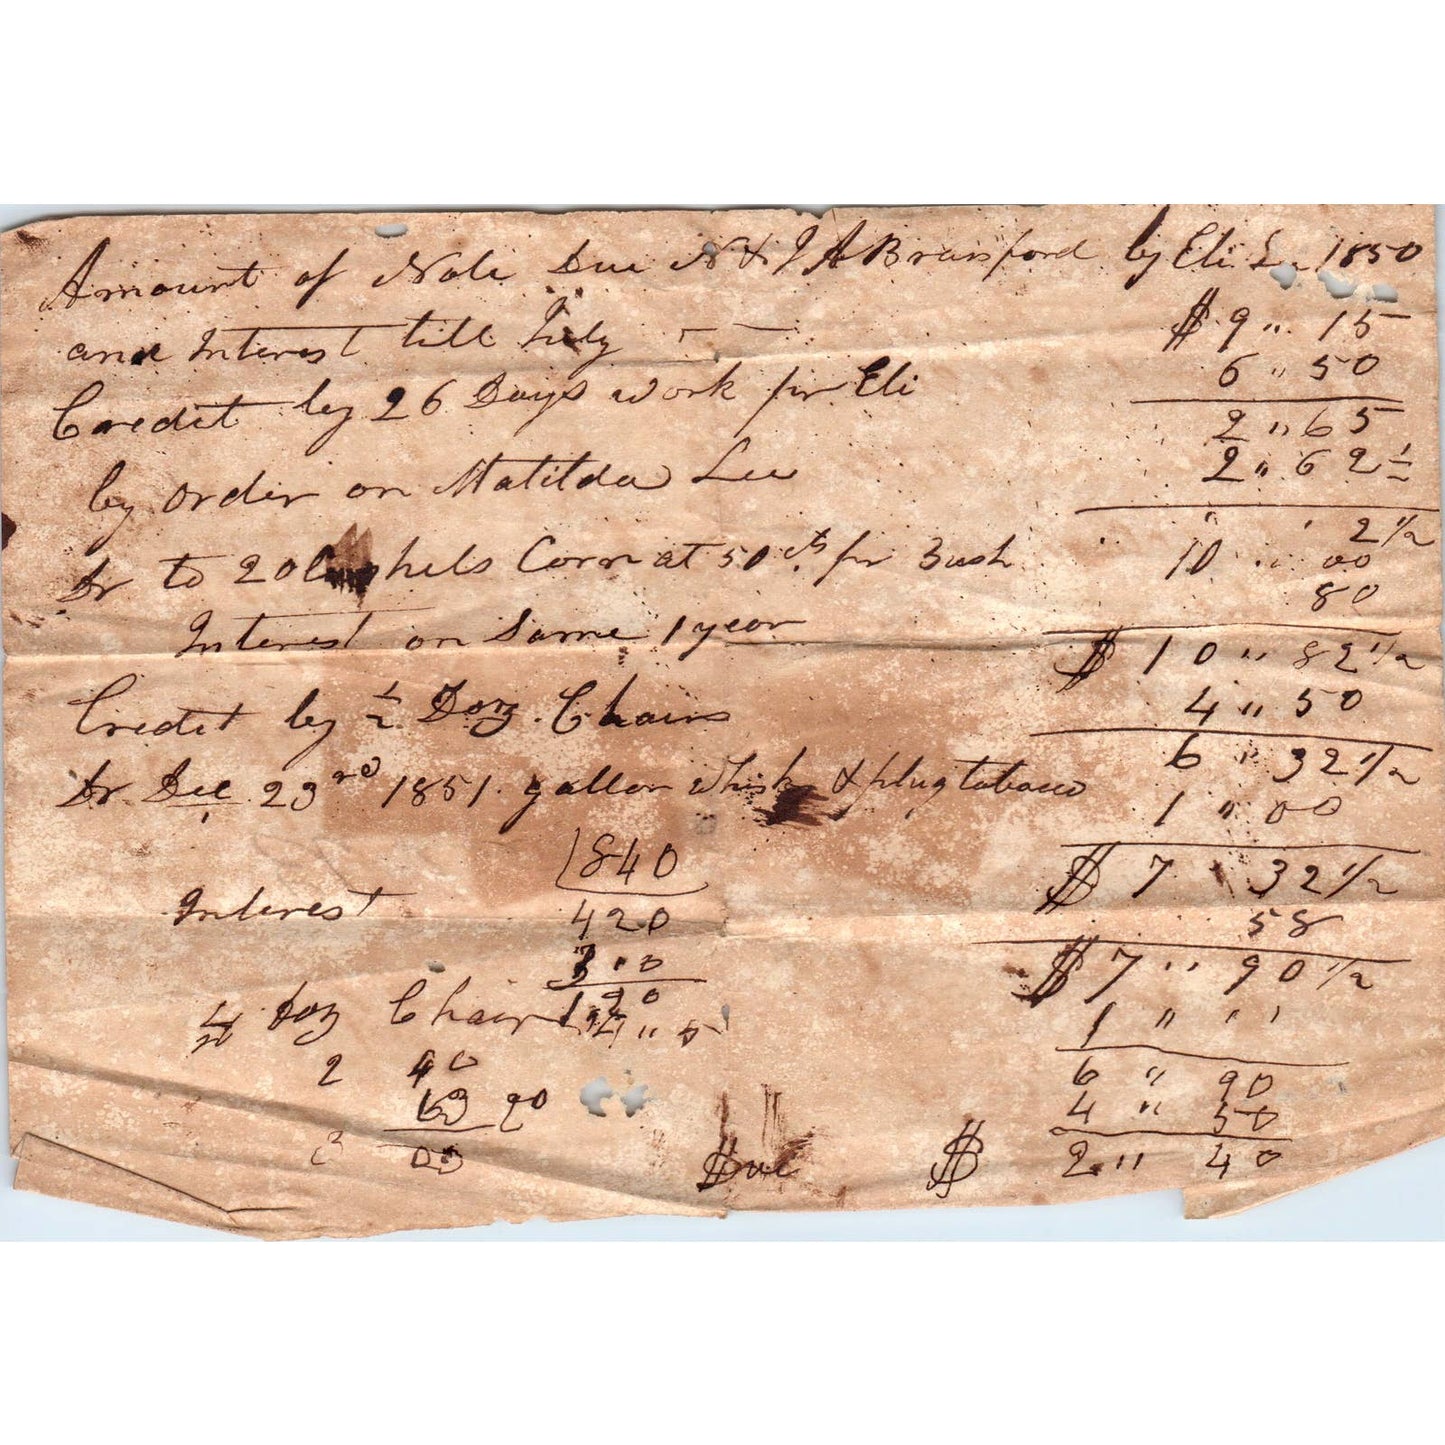 Amount of Note Due N & J A Bransford by Eli L 1850
and Interest till July $ 9 " 15
Credit by 26 Days work pr Eli 6 " 50
2 " 65
by order on Matilda Lee 2 " 62 1/2
2 1/2
Dr to 20 Bushels Corn at 50 cts pr Bush 10 " 00
Interest on Same 1 year 80
$ 10 " 82 1/2
Credit by 1/2 Doz. Chairs 4 " 50
6 " 32 1/2
Dr Dec 23rd 1851. gallon Whisky & plug tobacco 1 " 00
840 $ 7 32 1/2
Interest 420 58
300 $ 7 " 90 1/2
120
doz Chairs 1 " "
2 40 6 " 90
63 90 4 " 50
3 03 Due $ 2 " 40